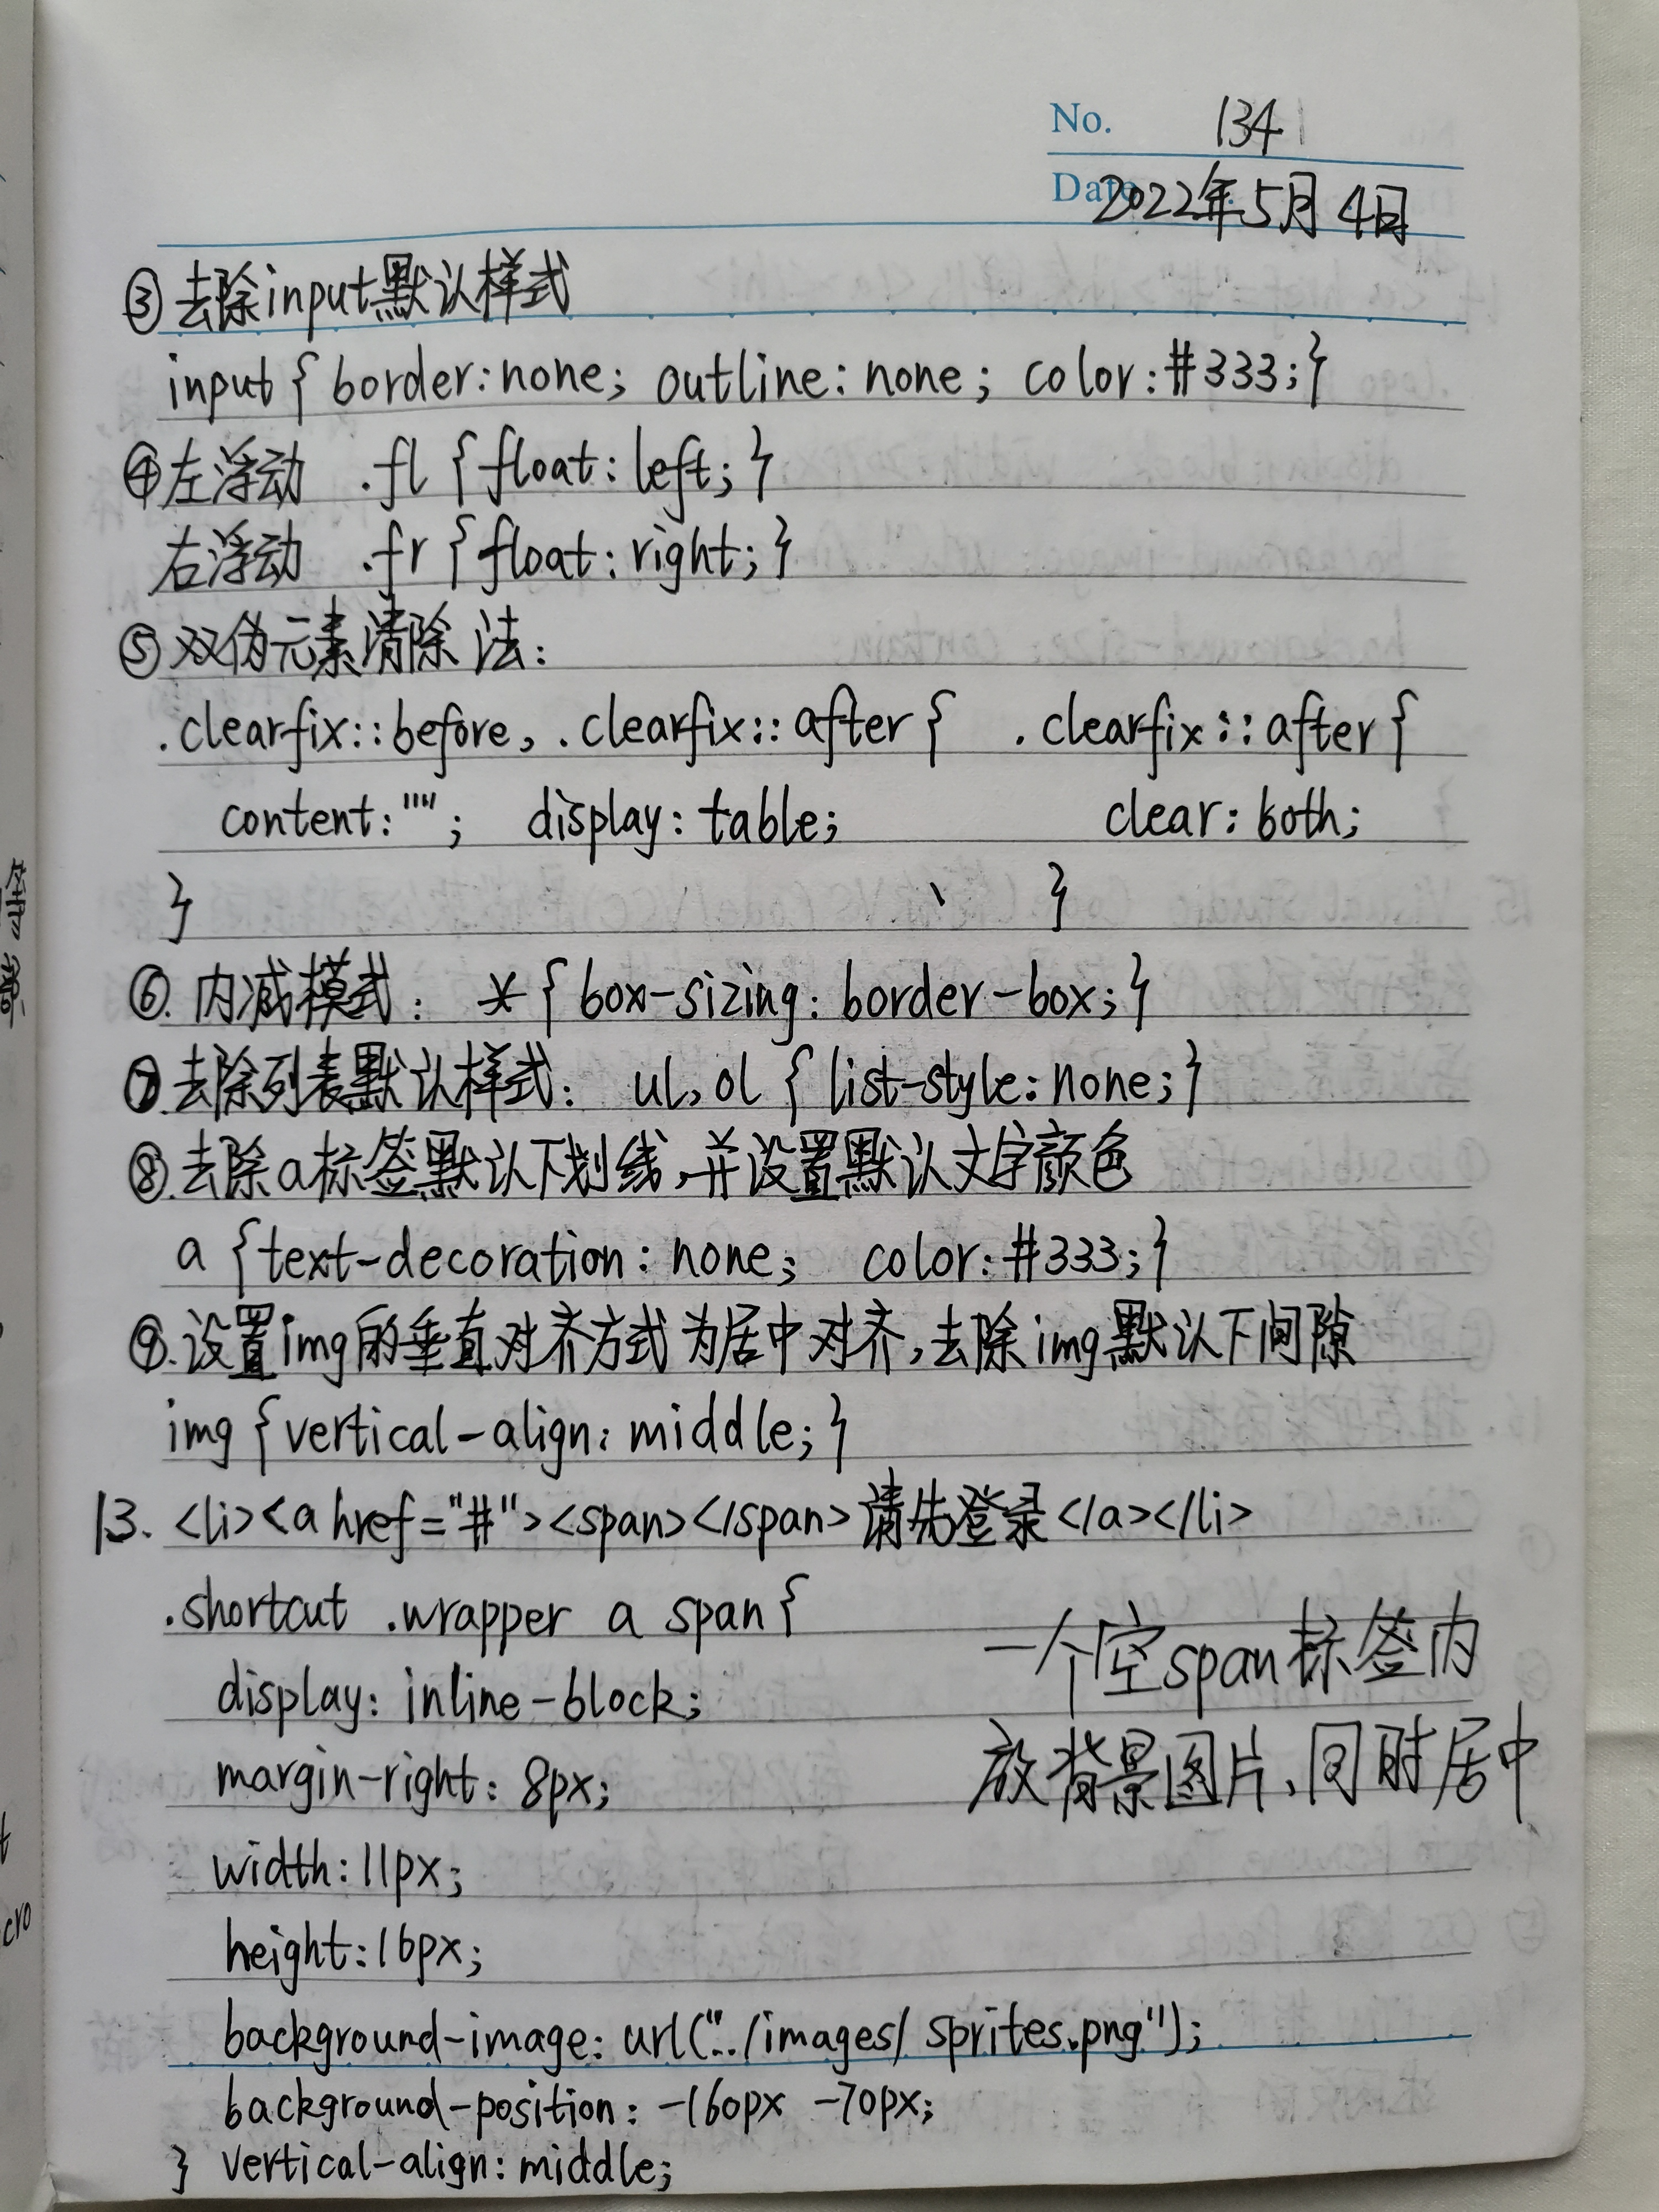 No. 134
Date 2022年5月4日
③去除input默认样式
input { border:none; outline:none; color:#333;}
④左浮动 .fl {float:left;}
右浮动 .fr {float:right;}
⑤双伪元素清除法:
.clearfix::before, .clearfix::after { .clearfix::after {
content:""; display:table; clear:both;
} }
⑥.内减模式: * {box-sizing:border-box;}
⑦去除列表默认样式: ul,ol {list-style:none;}
⑧.去除a标签默认下划线,并设置默认文字颜色
a {text-decoration:none; color:#333;}
⑨.设置img的垂直对齐方式为居中对齐,去除img默认下间隙
img {vertical-align:middle;}
13. <li><a href="#"><span></span>请先登录</a></li>
.shortcut .wrapper a span {
一个空span标签内
display: inline-block;
放背景图片、同时居中
margin-right: 8px;
width:11px;
height:16px;
background-image: url("../images/sprites.png");
background-position: -160px -70px;
} vertical-align: middle;